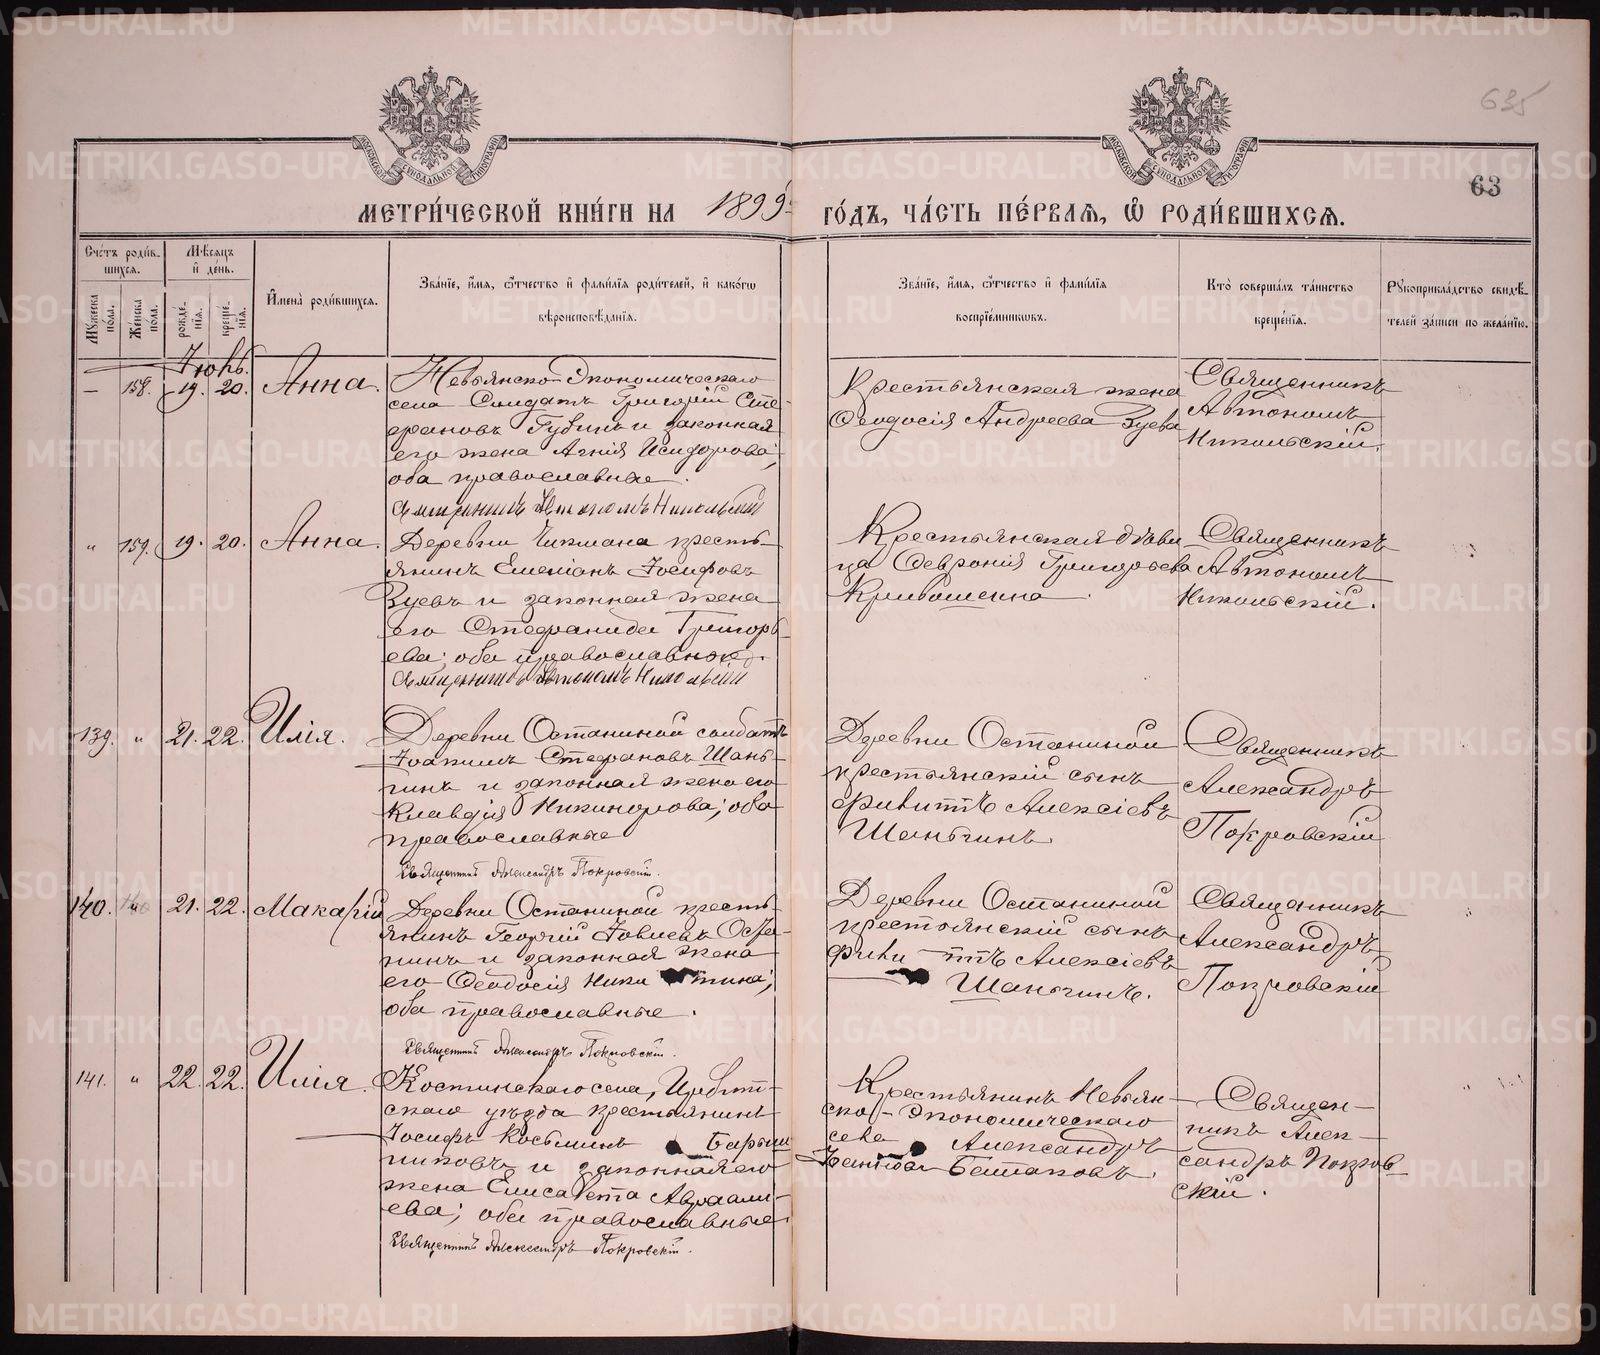 635
63
МОСКОВСКОЙ СѴНОДАЛЬНОЙ ТИПОГРАФІИ
МОСКОВСКОЙ СѴНОДАЛЬНОЙ ТИПОГРАФІИ
МЕТРИ́ЧЕСКОЙ КНИ́ГИ НА 1899 ГО́ДЪ, ЧА́СТЬ ПЕ́РВАѦ, Ѽ РОДИ́ВШИХСѦ.
Сче́тъ роди́в-
шихсѧ.
Мѣ́сѧцъ
и҆ де́нь.
Мꙋ́жеска
пола.
Же́нска
пола.
рожде́-
нїѧ.
креще́-
нїѧ.
И҆мена̀ роди́вшихсѧ.
Зва́нїе, и҆́мѧ, ѻ҆́тчество и҆ фами́лїѧ роди́телей, и҆ како́гѡ
вѣроисповѣ́данїѧ.
Зва́нїе, и҆́мѧ, ѻ҆́тчество и҆ фами́лїѧ
воспрїе́мникѡвъ.
Кто̀ соверша́лъ та́инство
креще́нїѧ.
Рꙋкоприкла́дство свидѣ́-
телей за́писи по жела́нїю.
Іюнь.
— 158. 19. 20. Анна.
Невьянско-Экономическаго
села Солдатъ Григорій Сте-
фановъ Губинъ и законная
его жена Агнія Исидорова;
оба православные.
Священникъ Автономъ Никольскій
Крестьянская жена
Ѳеодосія Андреева Зуева
Священникъ
Автономъ
Никольскій.
" 159. 19. 20. Анна.
Деревни Чикмана кресть-
янинъ Емеліанъ Іосифовъ
Зуевъ и законная жена
его Стефанида Григорь-
ева; оба православные.
Священникъ Автономъ Никольскій
Крестьянская дѣви-
ца Ѳевронія Григорьева
Кривошеина.
Священникъ
Автономъ
Никольскій.
139. " 21. 22. Илія.
Деревни Останиной солдатъ
Іоакимъ Стефановъ Шань-
гинъ и законная жена его
Клавдія Никифорова; оба
православные
Священникъ Александръ Покровскій.
Деревни Останиной
крестьянскій сынъ
Филиппъ Алексіевъ
Шаньгинъ.
Священникъ
Александръ
Покровскій
140. 21. 22. Макарій
Деревни Останиной кресть-
янинъ Георгій Іовлевъ Оста-
нинъ и законная жена
его Ѳеодосія Ники тина;
оба православные.
Священникъ Александръ Покровскій.
Деревни Останиной
крестьянскій сынъ
Фили — ппъ Алексіевъ
Шаньгинъ.
Священникъ
Александръ
Покровскій
141. " 22. 22. Илія
Костинскаго села, Ирбит-
скаго уѣзда крестьянинъ
Іосифъ Косьминъ Барыш
никовъ и законная его
жена Елисавета Авраами-
ева; оба православные
Священникъ Александръ Покровскій.
Крестьянинъ Невьян-
ско-Экономическаго
села Александръ
Батаковъ.
Священ-
никъ Алек-
сандръ Покров-
скій.